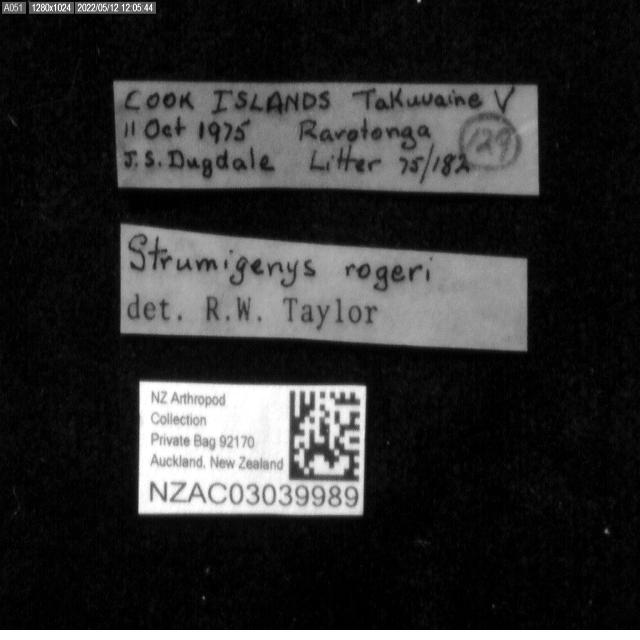 A051 1280x1024 2022/05/12 12:05:44
COOK ISLANDS Takuvaine V
11 Oct 1975 Rarotonga 129
J.S. Dugdale Litter 75/182
Strumigenys rogeri
det. R.W. Taylor
NZ Arthropod
Collection
Private Bag 92170
Auckland, New Zealand
NZAC03039989